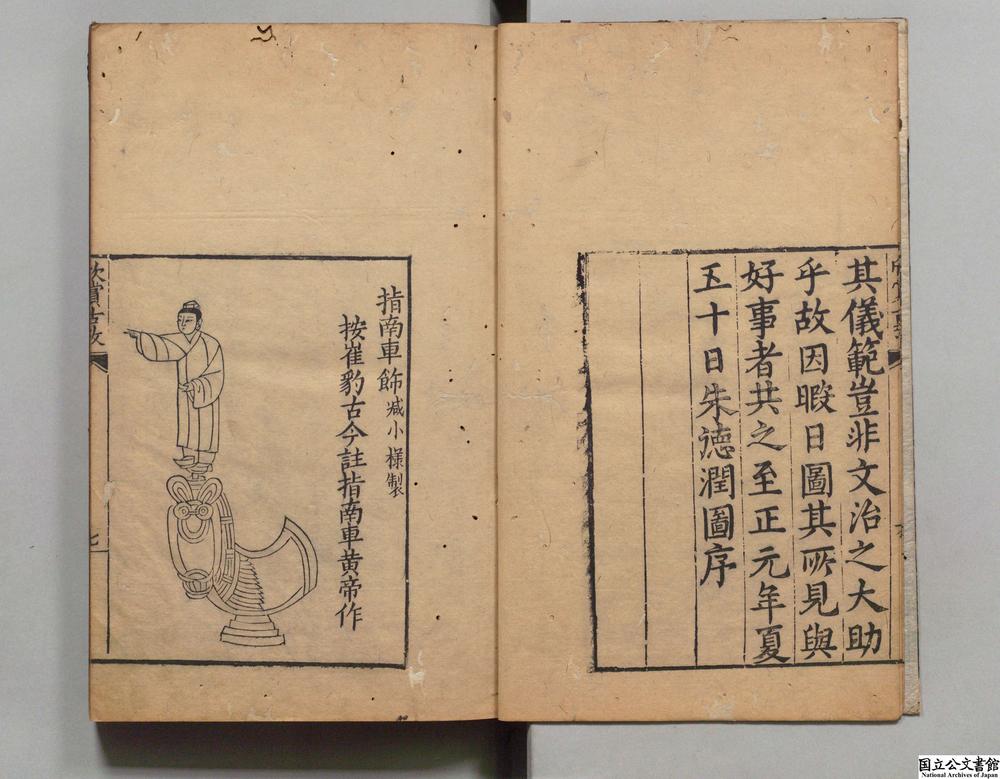 其儀範豈非文治之大助
乎故因暇日圖其所見與
好事者共之至正元年夏
五十日朱德潤圖序
指南車飾减小樣製
按崔豹古今註指南車黄帝作
七
国立公文書館
National Archives of Japan